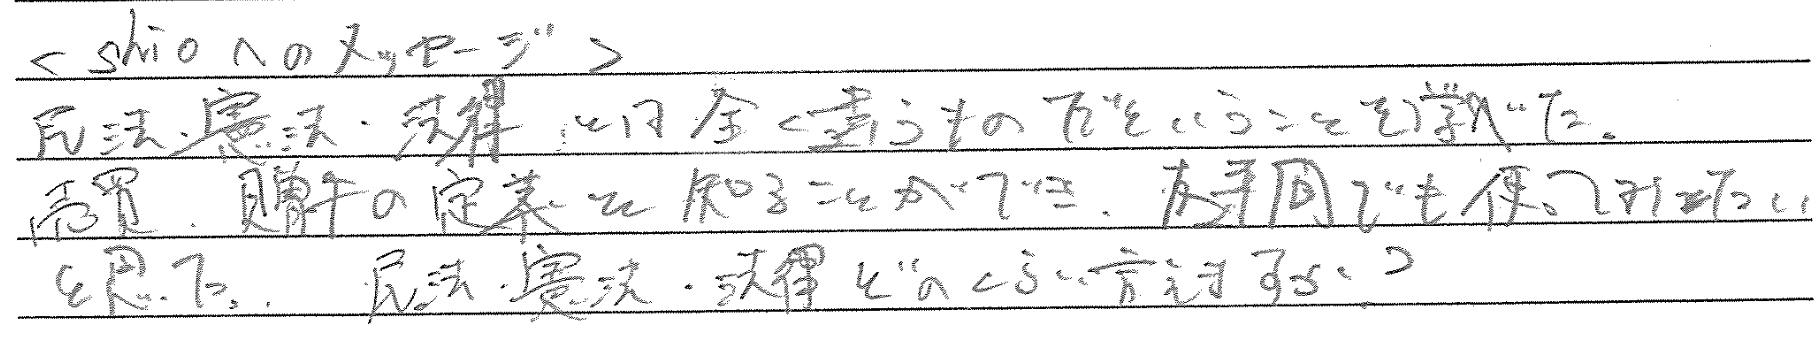 <shioへのメッセージ>
民法・憲法・法律とは全く違うものだということを学べた。
売買、贈与の定義を知ることができ、友達間でも使ってみたい
と思った。 民法・憲法・法律どのくらい言えますか?